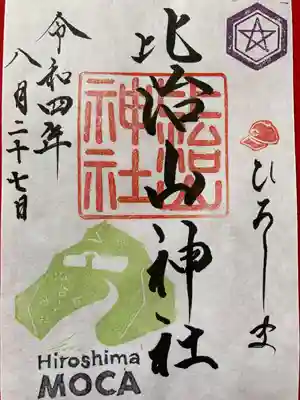 ひろしま
比治山神社
比治山
神社
令和四年
八月二十七日
Hiroshima
MOCA